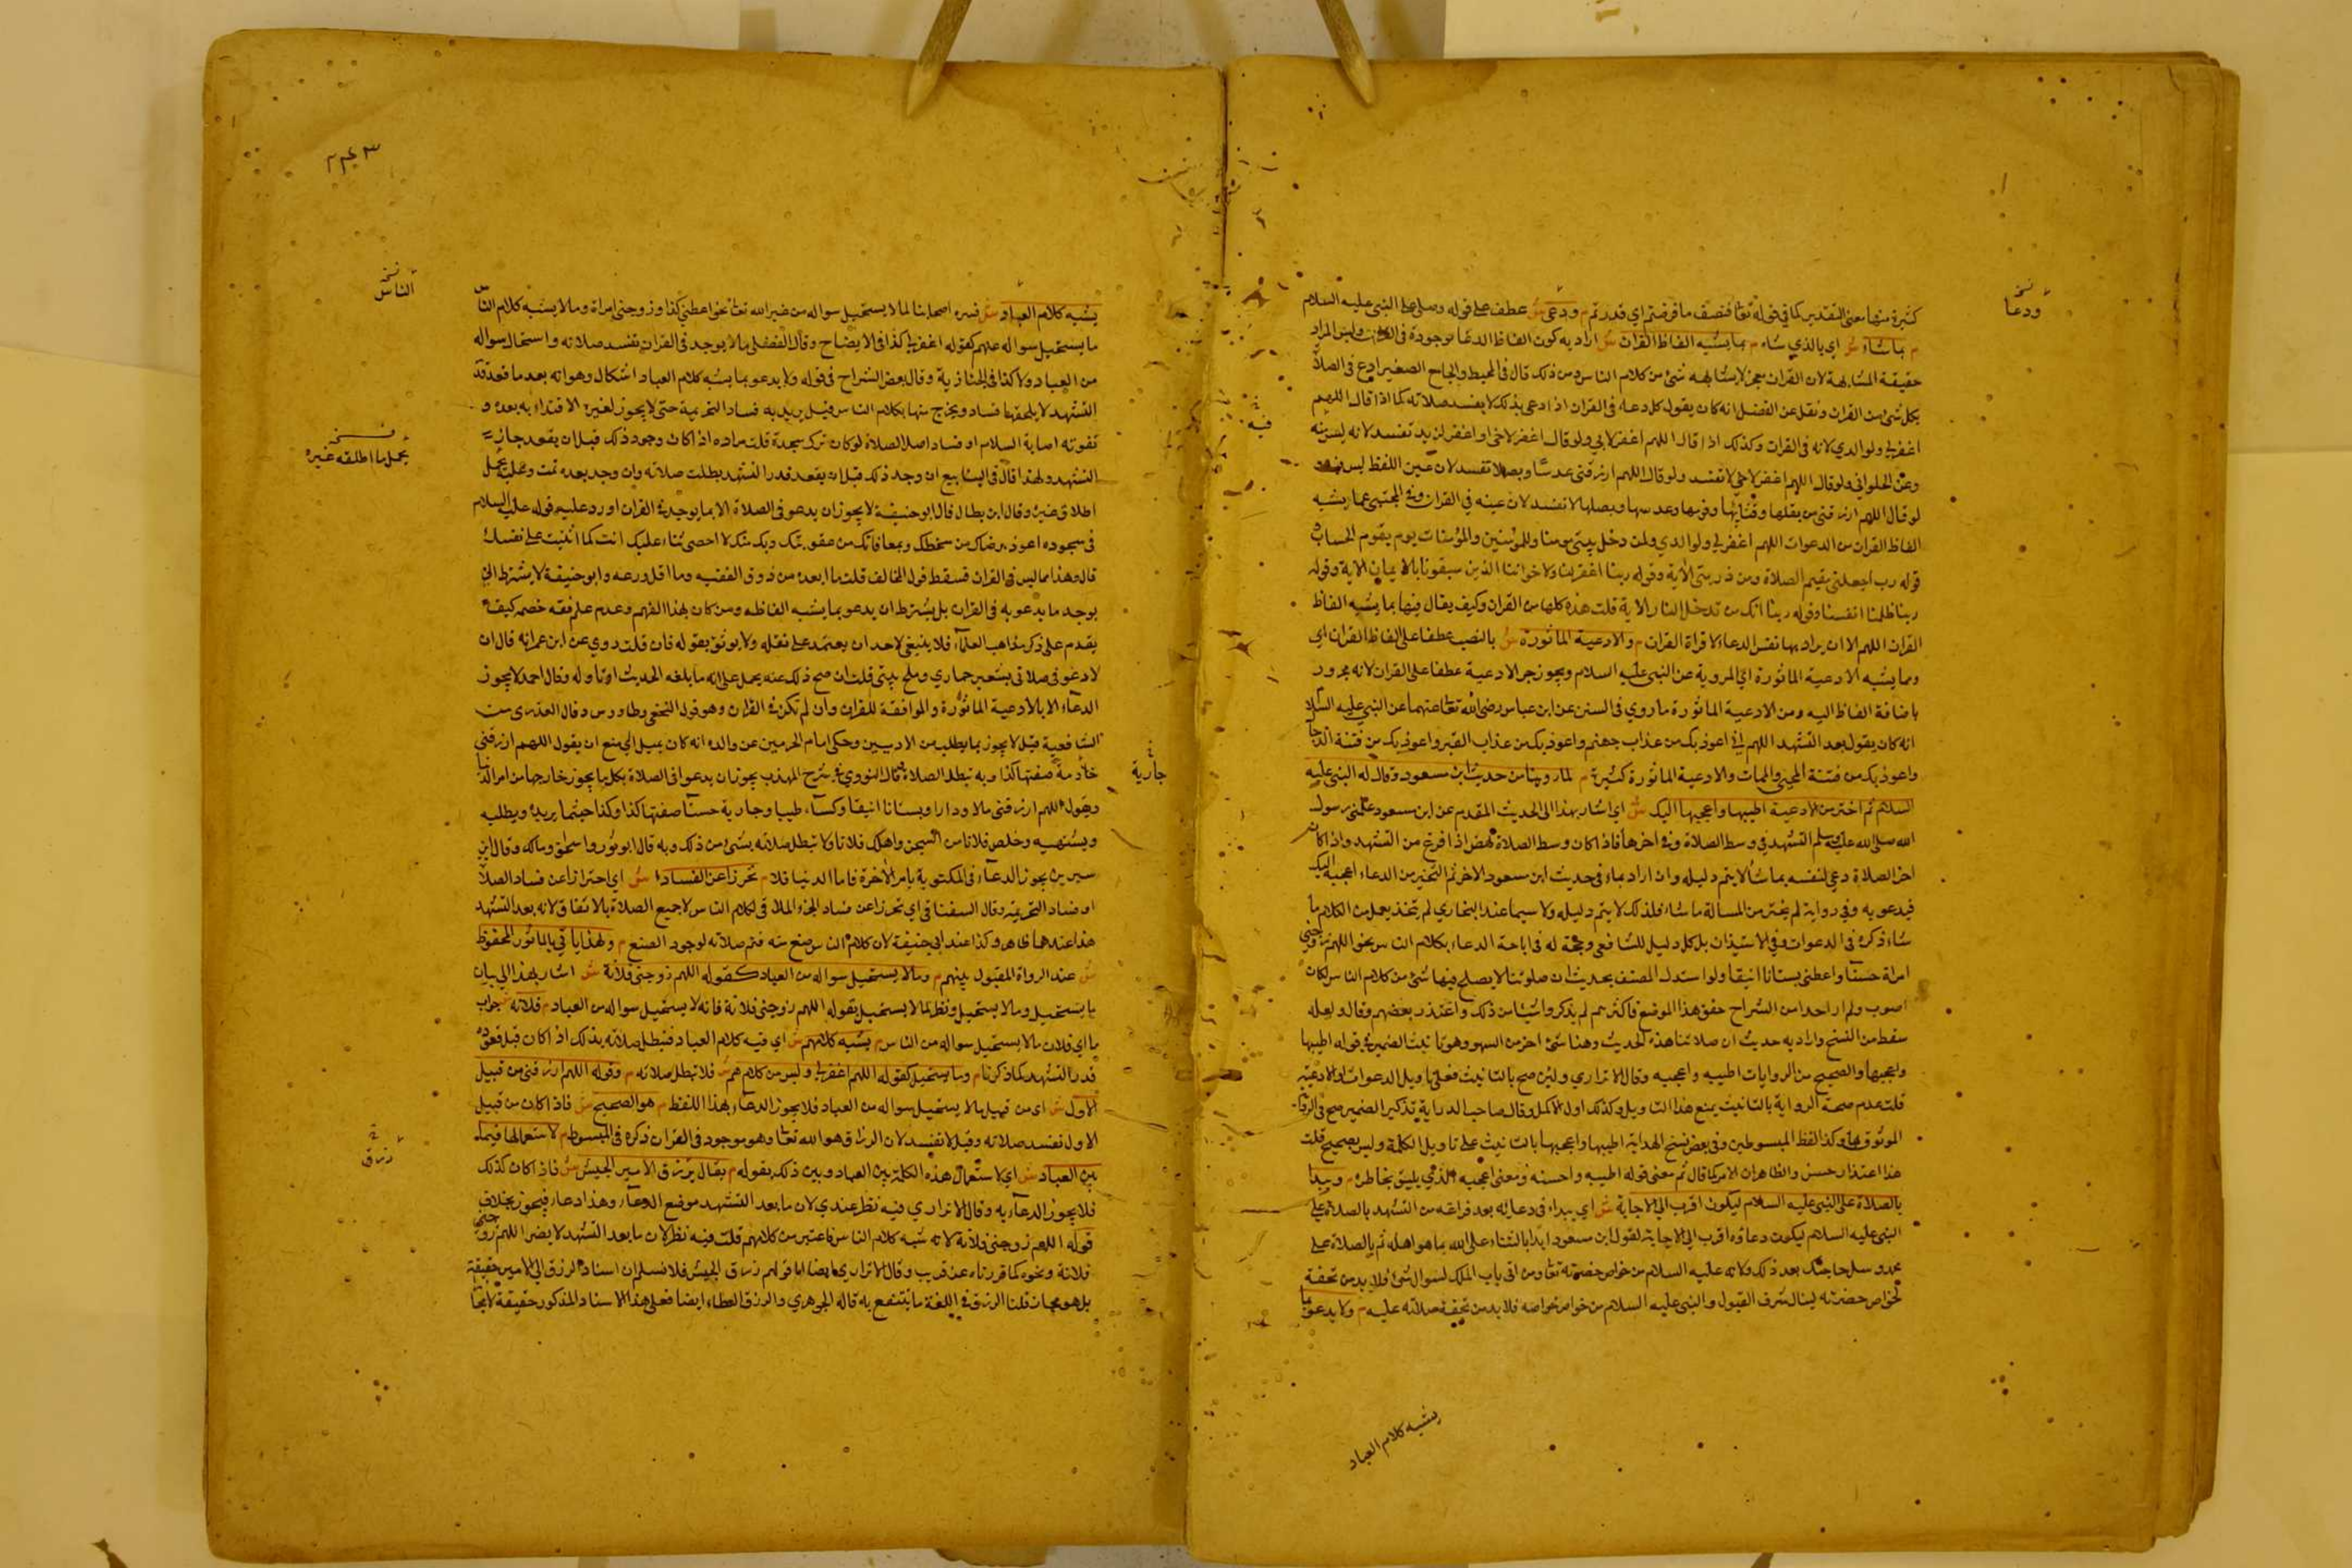 كثيرة منها معنى التقدير كما في قوله تعا فنصف ما فرضتم اي قدرتم م ودعى ش عطف على قوله وصلى على النبي عليه السلام
م بما شاء ش اي بالذي شاء م بما يشبه الفاظ القران ش اراد به كون الفاظ الدعا موجودة في القران وليس المراد
حقيقة المشابهة لان القران معجز لا يشابهه شئ من كلام الناس ومن ذلك قال في المحيط والجامع الصغير ادع في الصلاة
بكل شئ من القران ونقل عن الفضل انه كان يقول كل دعاء في القران اذا دعى بذلك لا يفسد صلاته كما اذا قال اللهم
اغفر لي ولوالدي لانه في القران وكذلك اذا قال اللهم اغفر لابي ولو قال اغفر لاخي او اغفر لزيد تفسد لانه ليس فيه
وعن الحلواني ولو قال اللهم اغفر لاخي لا تفسد ولو قال اللهم ارزقني عدسا وبصلا تفسد لان عين اللفظ ليس فيه
لو قال اللهم ارزقني من بقلها وقثائها وفومها وعدسها وبصلها لا تفسد لان عينه في القران وفي المجتبى عما يشبه
الفاظ القران من الدعوات اللهم اغفر لي ولوالدي ولمن دخل بيتي مومنا وللمؤمنين والمؤمنات يوم يقوم الحساب
قوله رب اجعلني مقيم الصلاة ومن ذريتي الاية وقوله ربنا اغفر لنا ولاخواننا الذين سبقونا بالايمان الاية وقوله
ربنا ظلمنا انفسنا وقوله ربنا انك من تدخل النار الاية قلت هذه كلها من القران وكيف يقال فيها بما يشبه الفاظ
القران اللهم الا ان يراد بها نفس الدعاء لا قراة القران م والادعية الماثورة ش بالنصب عطفا على الفاظ القران اي
وبما يشبه الادعية الماثورة اي المروية عن النبي عليه السلام ويجوز جر الادعية عطفا على القران لانه مجرور
باضافة الفاظ اليه ومن الادعية الماثورة ما روي في السنن عن ابن عباس رضي الله تعا عنهما عن النبي عليه السلام
انه كان يقول بعد التشهد اللهم اني اعوذ بك من عذاب جهنم واعوذ بك من عذاب القبر واعوذ بك من فتنة الدجال
واعوذ بك من فتنة المحيى والممات والادعية الماثورة كثيرة م لما روينا من حديث ابن مسعود وقال له النبي عليه
السلام ثم اختر من الادعية اطيبها واعجبها اليك ش اي اشار بهذا الى الحديث المقدم عن ابن مسعود علمني رسول
الله صلى الله عليه وسلم التشهد في وسط الصلاة وفي اخرها فاذا كان وسط الصلاة نهض اذا فرغ من التشهد واذا كان
اخر الصلاة دعى لنفسه بما شاء لا يتم دليله وان اراد بما في حديث ابن مسعود الاخر ثم ليتخير من الدعاء اعجبه اليك
فيدعو به وفي رواية ثم يخير من المسألة ما شاء فلذلك لا يتم دليله ولا سيما عند البخاري ثم يتخير بعد من الكلام ما
شاء ذكره في الدعوات وفي الاستيذان بل كل دليل للشافعي وحجة له في اباحة الدعاء بكلام الناس نحو اللهم زوجني
امراة حسنا واعطني بستانا انيقا ولو استدل المصنف بحديث ان صلوتنا لا يصلح فيها شئ من كلام الناس لكان
اصوب ولم ار احدا من الشراح حقق هذا الموضع فاكثرهم لم يذكروا شيئا من ذلك واعتذر بعضهم وقال ولعله
سقط من النسخ واراد به حديث ان صلاتنا هذه الحديث وهنا شئ اخر من السهو وهو تانيث الضمير في قوله اطيبها
واعجبها والصحيح من الروايات اطيبه واعجبه وقال الاتراري ولئن صح بالتانيث فعلى تاويل الدعوات او الادعية
قلت عدم صحة الرواية بالتانيث يمنع هذا التاويل وكذلك اول الاكمل وقال صاحب الدراية تذكير الضمير صح في الرواية
الموثوق بها وكذا لفظ المبسوطين وفي بعض نسخ الهداية اطيبها واعجبها بالتانيث على تاويل الكلمة وليس بصحيح قلت
هذا اعتذار حسن والظاهر ان الامر كما قال ثم معنى قوله اطيبه واحسنه ومعنى اعجبه الذي يليق بخاطره م ويبدا
بالصلاة على النبي عليه السلام ليكون اقرب الى الاجابة ش اي يبداء في دعائه بعد فراغه من التشهد بالصلاة على
النبي عليه السلام ليكون دعاؤه اقرب الى الاجابة لقول ابن مسعود ابدا بالثناء على الله بما هو اهله ثم بالصلاة على
محمد وسل حاجتك بعد ذلك ولانه عليه السلام من خواص حضرته تعا ومن اتى باب الملك لسوال شئ فلا بد من تحفة
لخواص حضرته لينال شرف القبول والنبي عليه السلام من خواص خواصه فلا بد من تحفة صلاته عليه م ولا يدعو بما
نسخه
ودعا
فيه
يشبه كلام العباد
يشبه كلام العباد ش فسره اصحابنا لما لا يستحيل سواله من غير الله تعا نحو اعطني كذا وزوجني امراة وما لا يشبه كلام الناس
ما يستحيل سواله عنهم كقوله اغفر لي كذا في الايضاح وقال الفضلي ما لا يوجد في القران تفسد صلاته واستحال سواله
من العباد ولا كذا في الخبازية وقال بعض الشراح في قوله ولا يدعو بما يشبه كلام العباد اشكال وهو انه بعد ما قعد قدر
التشهد لا يلحقها فساد ويخرج منها بكلام الناس وقيل يريد به فساد التحريمة حتى لا يجوز لغيره الاقتداء به بعده و
تفوته اصابة السلام او فساد اصل الصلاة لو كان ترك سجدة قلت مراده اذا كان وجود ذلك قبل ان يقعد جاز
التشهد ولهذا قال في الينابيع ان وجد ذلك قبل ان يقعد قدر التشهد بطلت صلاته وان وجد بعده تمت وعليه يحمل
اطلاق غيره وقال ابن بطال قال ابو حنيفة لا يجوز ان يدعو في الصلاة الا بما يوجد في القران اورد عليه قوله عليه السلام
في سجوده اعوذ برضاك من سخطك وبمعافاتك من عقوبتك وبك منك لا احصى ثناء عليك انت كما اثنيت على نفسك
قال وهذا مما ليس في القران فسقط قول المخالف قلت ما ابعده من ذوق الفقه وما اقل ورعه وابو حنيفة لا يشترط ان
يوجد ما يدعو به في القران بل يشترط ان يدعو بما يشبه الفاظه ومن كان بهذا الفهم وعدم علم فقه خصمه كيف
يقدم على ذكر مذاهب العلماء فلا ينبغي لاحد ان يعتمد على نقله ولا يوثق بقوله فان قلت روي عن ابن عمر انه قال ان
لادعو في صلاتي بشعير حماري وملح بيتي قلت ان صح ذلك عنه يحمل على انه ما بلغه الحديث او تاوله وقال احمد لا يجوز
الدعاء الا بالادعية الماثورة والموافقة للقران وان لم تكن في القران وهو قول النخعي وطاووس وقال العبدري من
الشافعية قيل لا يجوز بما يطلب من الادميين وحكى امام الحرمين عن والده انه كان يميل الى منع ان يقول اللهم ارزقني
خادمة صفتها كذا وبه تبطل الصلاة قال النووي في شرح المهذب يجوز ان يدعو في الصلاة بكل ما يجوز خارجها من امر الدنيا
وبقول اللهم ارزقني مالا ودارا وبستانا انيقا وكساء طيبا وجارية حسنا صفتها كذا وكذا حيثما يريده ويطلبه
ويشتهيه وخلص فلانا من السجن واهلك فلانا ولا تبطل صلاته بشئ من ذلك وبه قال ابو ثور واسحق ومالك وقال ابن
سيرين يجوز الدعاء في المكتوبة بامر الاخرة فاما الدنيا فلا م تحرزا عن الفساد ش اي احترازا عن فساد الصلاة
او فساد التحريمة وقال السغناقي اي تحرزا عن فساد الجزء الملاقي لكلام الناس لا جميع الصلاة بالاتفاق لانه بعد التشهد
هذا عندهما ظاهر وكذا عند ابي حنيفة لان كلام الناس صنع منه فتم صلاته لوجود الصنع م ولهذا ياتي بالماثور المحفوظ
ش عند الرواة المقبول بينهم م وما لا يستحيل سواله من العباد كقوله اللهم زوجني فلانة ش اشار بهذا الى بيان
ما يستحيل وما لا يستحيل ونظر لما لا يستحيل بقوله اللهم زوجني فلانة فانه لا يستحيل سواله من العباد م فلانه جواب
ما اي فلان ما لا يستحيل سواله من الناس م يشبه كلامهم ش اي فيه كلام العباد فتبطل صلاته بذلك اذا كان قبل قعوده
قدر التشهد كما ذكرنا م وما يستحيل كقوله اللهم اغفر لي وليس من كلامهم ش فلا تبطل صلاته م وقوله اللهم ارزقني من قبيل
الاول ش اي من قبيل ما لا يستحيل سواله من العباد فلا يجوز الدعاء بهذا اللفظ م هو الصحيح ش فاذا كان من قبيل
الاول تفسد صلاته وقيل لا تفسد لان الرزاق هو الله تعا وهو موجود في القران ذكره في المبسوط م لاستعمالها فيما
بين العباد ش اي لاستعمال هذه الكلمة بين العباد وبين ذلك بقوله م يقال رزق الامير الجيش ش فاذا كان كذلك
فلا يجوز الدعاء به وقال الاتراري فيه نظر عندي لان ما بعد التشهد موضع الدعاء وهذا دعاء فيجوز بخلاف
قوله اللهم زوجني فلانة لانه شبه كلام الناس فاعتبر من كلامهم قلت فيه نظر لان ما بعد التشهد لا يضر اللهم زوجني
فلانة ونحوه كما قررناه عن قريب وقال الاتراري ايضا اما قولهم رزق الجيش فلا نسلم ان اسناد الرزق الى الامير حقيقة
بل هو مجاز قلنا الرزق في اللغة ما ينتفع به قاله الجوهري والرزق العطاء ايضا فعلى هذا الاسناد المذكور حقيقة لا مجاز
نسخه
الناس
نسخه
يحمل ما اطلقه غيره
جارية
رزق